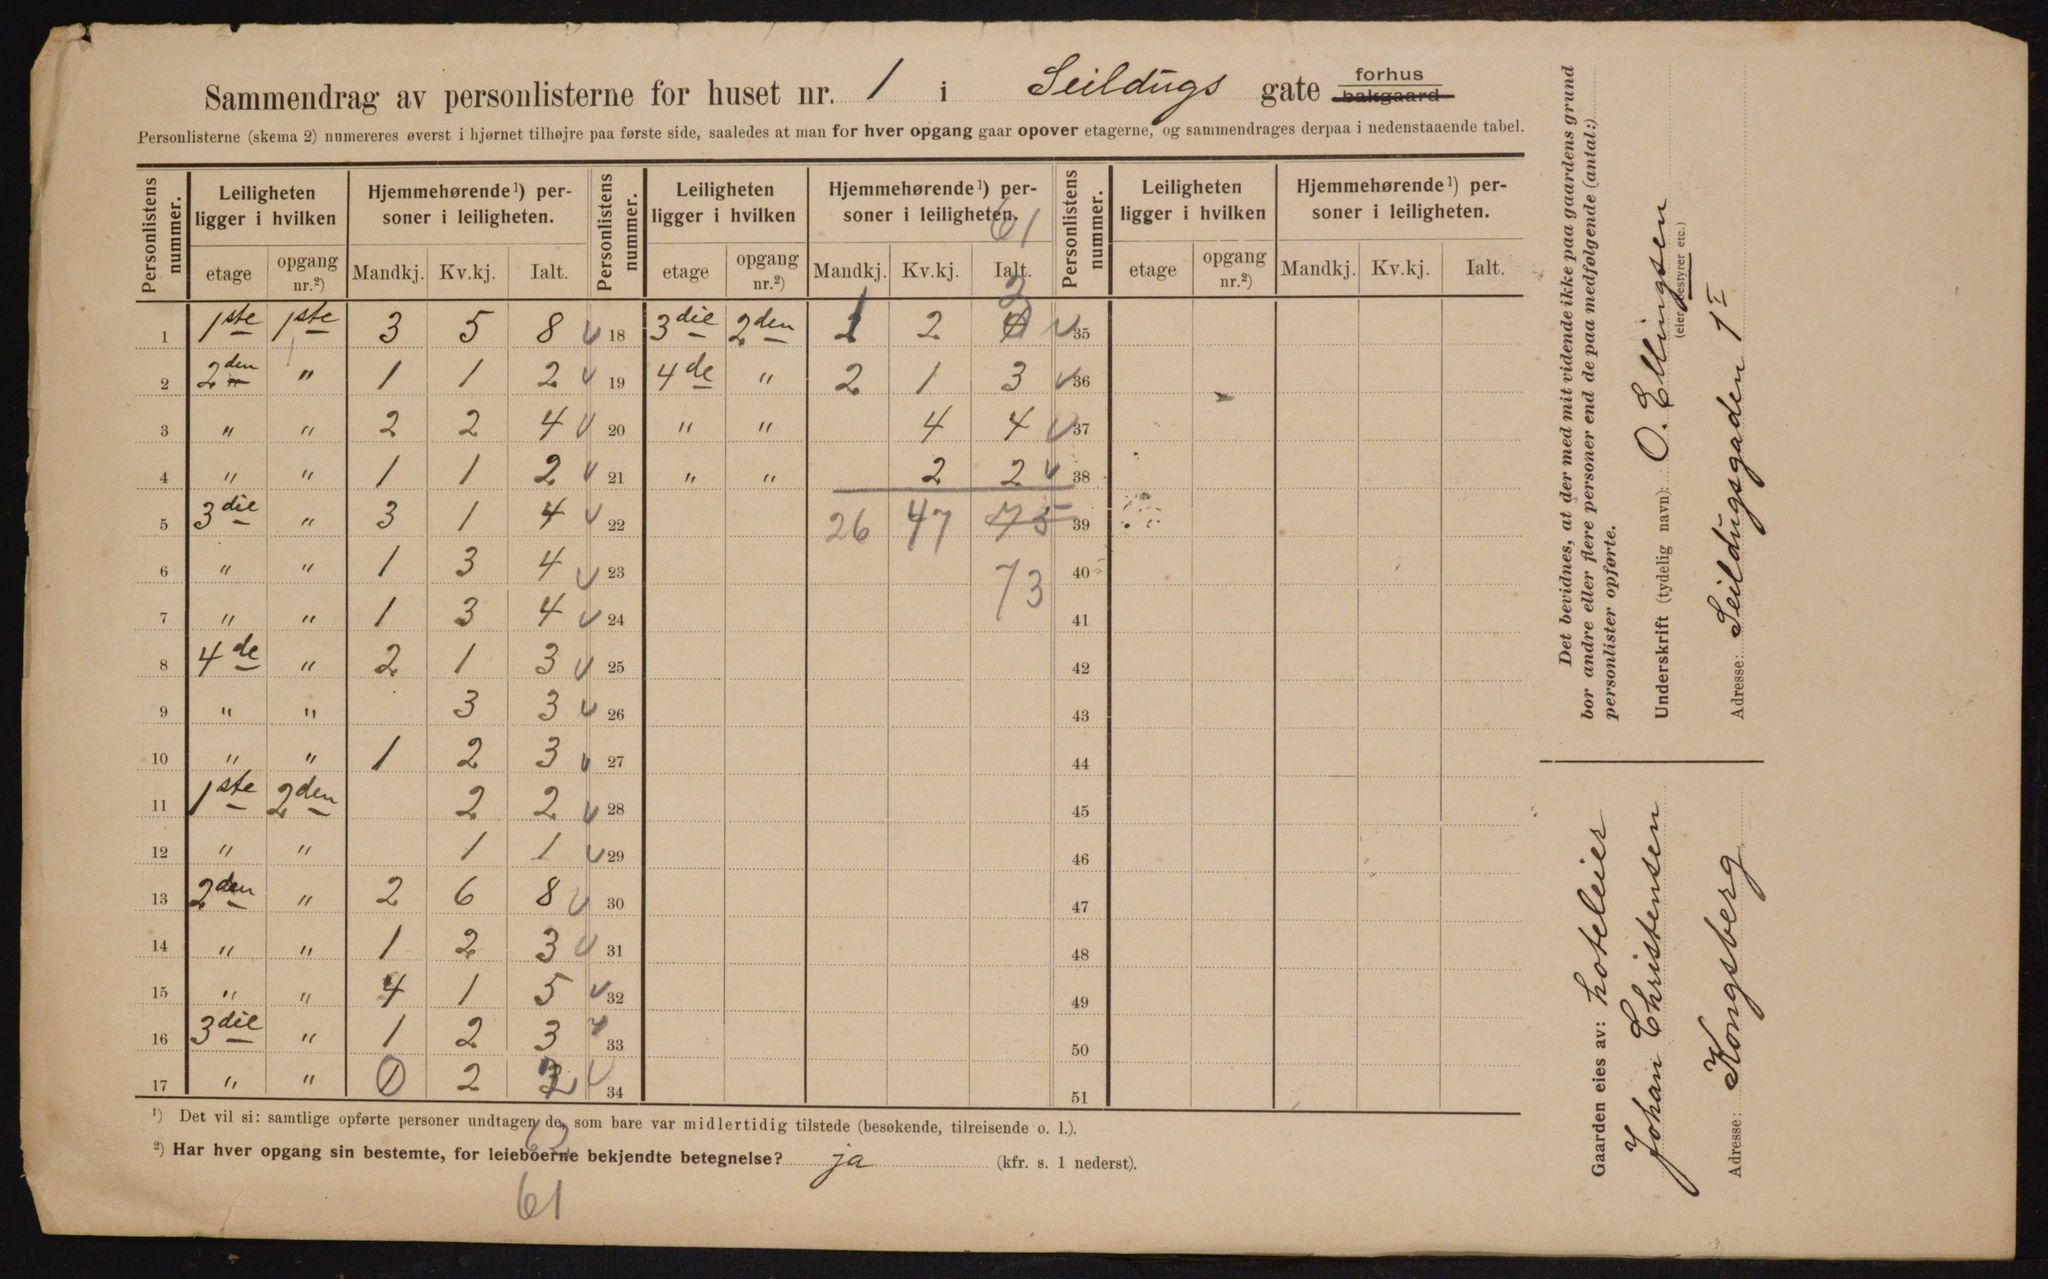 Sammendrag av personlisterne for huset nr. 1 i Seildugs gate forhus
bakgaard
Personlisterne (skema 2) numereres øverst i hjørnet tilhøjre paa første side, saaledes at man for hver opgang gaar opover etagerne, og sammendrages derpaa i nedenstaaende tabel.
Personlistens nummer. Leiligheten ligger i hvilken Hjemmehørende¹) personer i leiligheten. Personlistens nummer. Leiligheten ligger i hvilken Hjemmehørende¹) personer i leiligheten. Personlistens nummer. Leiligheten ligger i hvilken Hjemmehørende¹) personer i leiligheten.
61
etage opgang nr.²) Mandkj. Kv.kj. Ialt. etage opgang nr.²) Mandkj. Kv.kj. Ialt. etage opgang nr.²) Mandkj. Kv.kj. Ialt.
1 1ste 1ste 3 5 8 18 3die 2den 1 2 3 35
2 2den " 1 1 2 19 4de " 2 1 3 36
3 " " 2 2 4 20 " " 4 4 37
4 " " 1 1 2 21 " " 2 2 38
5 3die " 3 1 4 22 26 47 75 39
6 " " 1 3 4 23 73 40
7 " " 1 3 4 24 41
8 4de " 2 1 3 25 42
9 " " 3 3 26 43
10 " " 1 2 3 27 44
11 1ste 2den 2 2 28 45
12 " " 1 1 29 46
13 2den " 2 6 8 30 47
14 " " 1 2 3 31 48
15 " " 4 1 5 32 49
16 3die " 1 2 3 33 50
17 " " 0 2 2 34 51
¹) Det vil si: samtlige opførte personer undtagen de, som bare var midlertidig tilstede (besøkende, tilreisende o. l.).
²) Har hver opgang sin bestemte, for leieboerne bekjendte betegnelse? ja (kfr. s. 1 nederst).
61
Det bevidnes, at der med mit vidende ikke paa gaardens grund
bor andre eller flere personer end de paa medfølgende (antal:)
personlister opførte.
Underskrift (tydelig navn): O. Ellingsen
(eier, bestyrer etc.)
Adresse: Seildugsgaden 1 I
Gaarden eies av: hoteleier
Johan Christensen
Adresse: Kongsberg